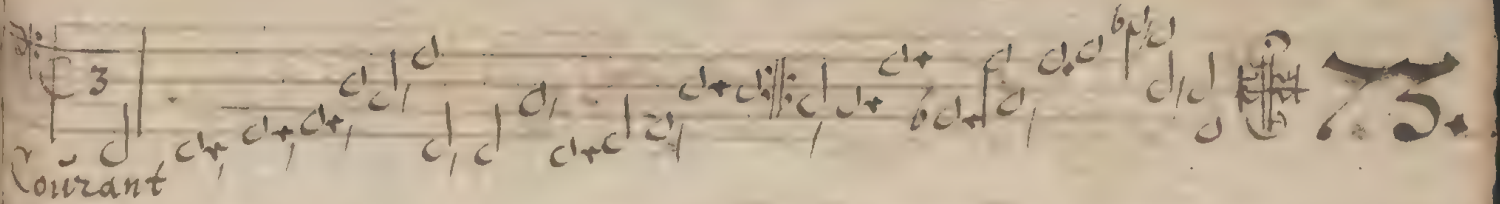 3
73.
Courant